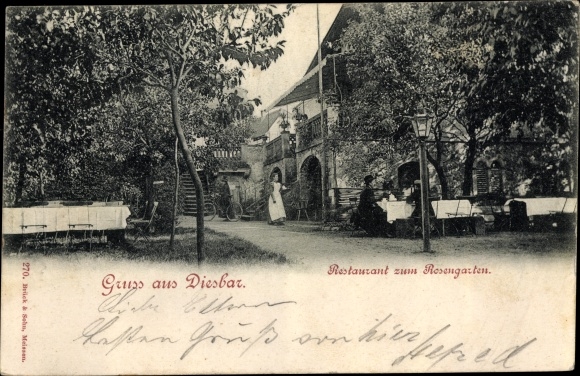 Gruss aus Diesbar.
Restaurant zum Rosengarten.
Liebe Eltern
Besten Gruß von hier
Alfred
270. Brück & Sohn, Meissen.